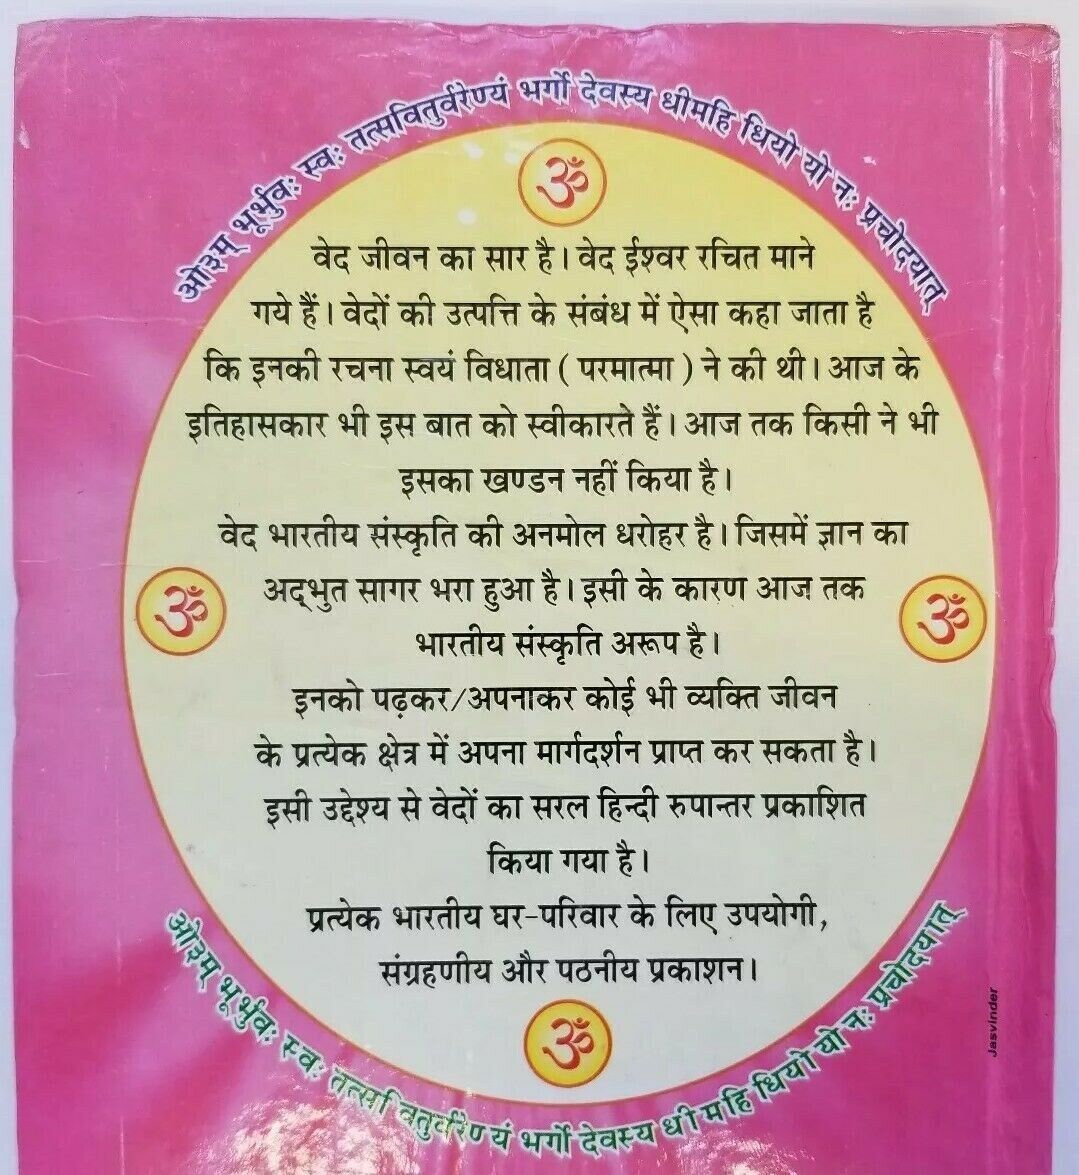 ओ३म् भूर्भुवः स्वः तत्सवितुर्वरेण्यं भर्गो देवस्य धीमहि धियो यो नः प्रचोदयात्
ॐ
वेद जीवन का सार है। वेद ईश्वर रचित माने
गये हैं। वेदों की उत्पत्ति के संबंध में ऐसा कहा जाता है
कि इनकी रचना स्वयं विधाता ( परमात्मा ) ने की थी। आज के
इतिहासकार भी इस बात को स्वीकारते हैं। आज तक किसी ने भी
इसका खण्डन नहीं किया है।
वेद भारतीय संस्कृति की अनमोल धरोहर है। जिसमें ज्ञान का
अद्भुत सागर भरा हुआ है। इसी के कारण आज तक
ॐ
ॐ
भारतीय संस्कृति अरूप है।
इनको पढ़कर/अपनाकर कोई भी व्यक्ति जीवन
के प्रत्येक क्षेत्र में अपना मार्गदर्शन प्राप्त कर सकता है।
इसी उद्देश्य से वेदों का सरल हिन्दी रुपान्तर प्रकाशित
किया गया है।
प्रत्येक भारतीय घर-परिवार के लिए उपयोगी,
संग्रहणीय और पठनीय प्रकाशन।
ॐ
ओ३म् भूर्भुवः स्वः तत्सवितुर्वरेण्यं भर्गो देवस्य धीमहि धियो यो नः प्रचोदयात्
Jasvinder